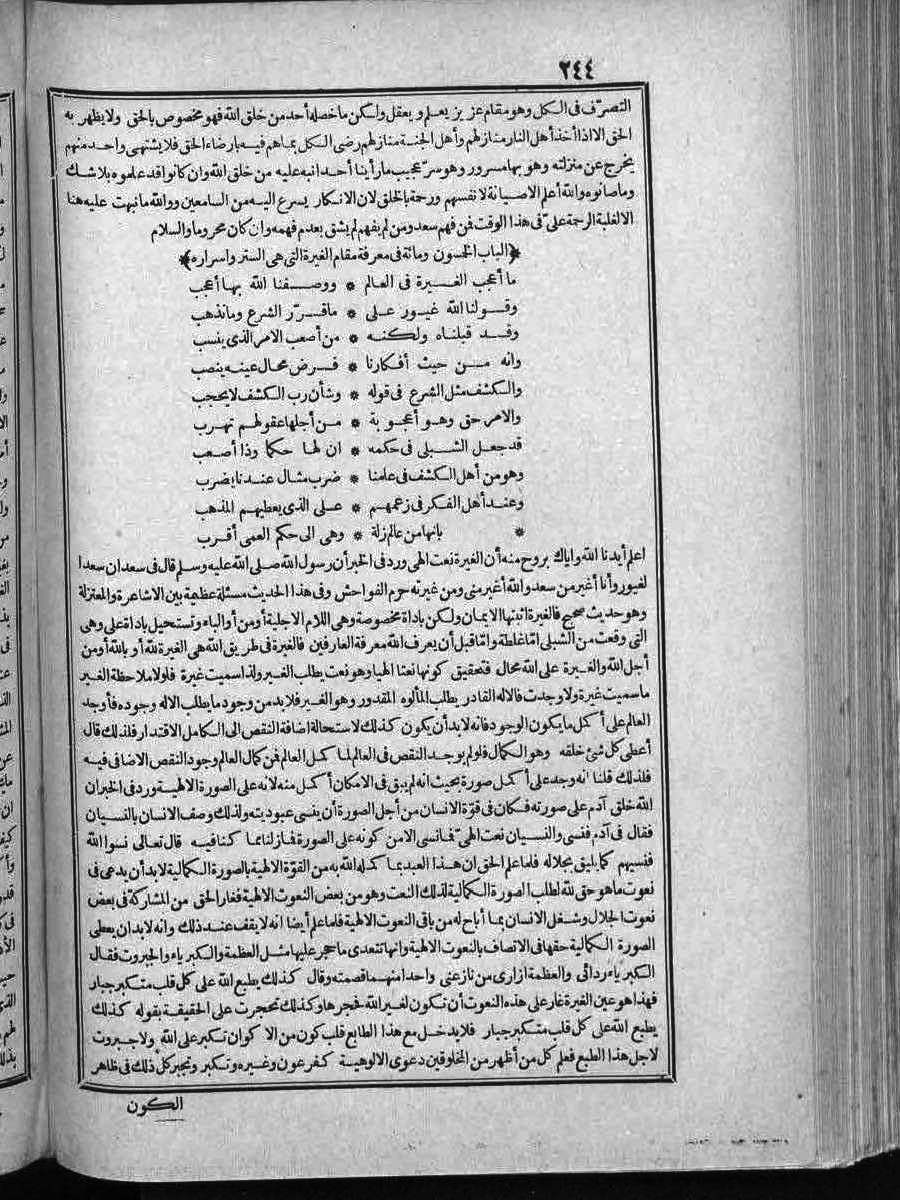 ٢٤٤
التصرّف في الكل وهو مقام عزيز يعلم ويعقل ولكن ما حصله أحد من خلق الله فهو مخصوص بالحق ولا يظهر به
الحق الا اذا أخذ أهل النار منازلهم وأهل الجنة منازلهم رضى الكل بما هم فيه بارضاء الحق فلا يشتهى واحد منهم
يخرج عن منزلته وهو بها مسرور وهو سرّ عجيب ما رأينا أحدا نبه عليه من خلق الله وان كانوا قد علموه بلا شك
وما صانوه والله أعلم الا صيانة لانفسهم ورحمة بالخلق لان الانكار يسرع اليه من السامعين ووالله ما نبهت عليه هنا
الا لغلبة الرحمة علىّ في هذا الوقت فمن فهم سعد ومن لم يفهم لم يشق بعدم فهمه وان كان محروما والسلام
﴿الباب الخمسون ومائة في معرفة مقام الغيرة التى هى الستر واسراره﴾
ما أعجب الغيرة في العالم * ووصفنا الله بها أعجب
وقولنا الله غيور على * ما قرّر الشرع وما نذهب
وقد قبلناه ولكنه * من أصعب الامر الذى ينسب
وانه من حيث أفكارنا * فرض محال عينه ينصب
والكشف مثل الشرع في قوله * وشأن رب الكشف لا يحجب
والامر حق وهو أعجوبة * من أجلها عقولهم تهرب
قد جعل الشبلى في حكمه * ان لها حكما وذا أصعب
وهو من أهل الكشف في علمنا * ضرب مثال عندنا يضرب
وعند أهل الفكر في زعمهم * على الذى يعطيهم المذهب
* بانها من عالم زلة * وهى الى حكم العمى أقرب
اعلم أيدنا الله واياك بروح منه أن الغيرة نعت الهى ورد في الخبر أن رسول الله صلى الله عليه وسلم قال في سعد ان سعدا
لغيور وأنا أغير من سعد والله أغير منى ومن غيرته حرم الفواحش وفي هذا الحديث مسئلة عظيمة بين الاشاعرة والمعتزلة
وهو حديث صحيح فالغيرة اثبتها الايمان ولكن باداة مخصوصة وهى اللام الاجلية أو من أو الباء وتستحيل باداة على وهى
التى وقعت من الشبلى امّا غلطة وامّا قبل أن يعرف الله معرفة العارفين فالغيرة في طريق الله هى الغيرة لله أو بالله أو من
أجل الله والغيرة على الله محال فتحقيق كونها نعتا الهيا وهو نعت يطلب الغير ولذا سميت غيرة فلولا ملاحظة الغير
ما سميت غيرة ولا وجدت فالاله القادر يطلب المألوه المقدور وهو الغير فلابد من وجود ما يطلب الاله وجوده فأوجد
العالم على أكمل ما يكون الوجود فانه لابد أن يكون كذلك لاستحالة اضافة النقص الى الكامل الاقتدار فلذلك قال
أعطى كل شئ خلقه وهو الكمال فلو لم يوجد النقص في العالم لما كمل العالم فمن كمال العالم وجود النقص الاضافى فيه
فلذلك قلنا انه وجد على أكمل صورة بحيث انه لم يبق في الامكان أكمل منه لانه على الصورة الالهية ورد في الخبر ان
الله خلق آدم على صورته فكان في قوّة الانسان من أجل الصورة أن ينسى عبوديته ولذلك وصف الانسان بالنسيان
فقال في آدم فنسى والنسيان نعت الهىّ فما نسى الا من كونه على الصورة فما زلنا مما كنا فيه قال تعالى نسوا الله
فنسيهم كما يليق بجلاله فلما علم الحق ان هذا العبد بما كمله الله به من القوّة الالهية بالصورة الكمالية لابد أن يدعى في
نعوت ما هو حق لله لطلب الصورة الكمالية لذلك النعت وهو من بعض النعوت الالهية فغار الحق من المشاركة في بعض
نعوت الجلال وشغل الانسان بما أباح له من باقى النعوت الالهية فلما علم أيضا انه لا يقف عند ذلك وانه لابد ان يعطى
الصورة الكمالية حقها في الاتصاف بالنعوت الالهية وانها تتعدى ما حجر عليها مثل العظمة والكبرياء والجبروت فقال
الكبرياء ردائى والعظمة ازارى من نازعنى واحدا منهما قصمته وقال كذلك يطبع الله على كل قلب متكبر جبار
فهذا هو عين الغيرة غار على هذه النعوت أن تكون لغير الله فحجرها وكذلك تحجرت على الحقيقة بقوله كذلك
يطبع الله على كل قلب متكبر جبار فلا يدخل مع هذا الطابع قلب كون من الاكوان تكبر على الله ولا جبروت
لاجل هذا الطبع فعلم كل من أظهر من المخلوقين دعوى الالوهية كفرعون وغيره وتكبر وتجبر كل ذلك في ظاهر
الكون